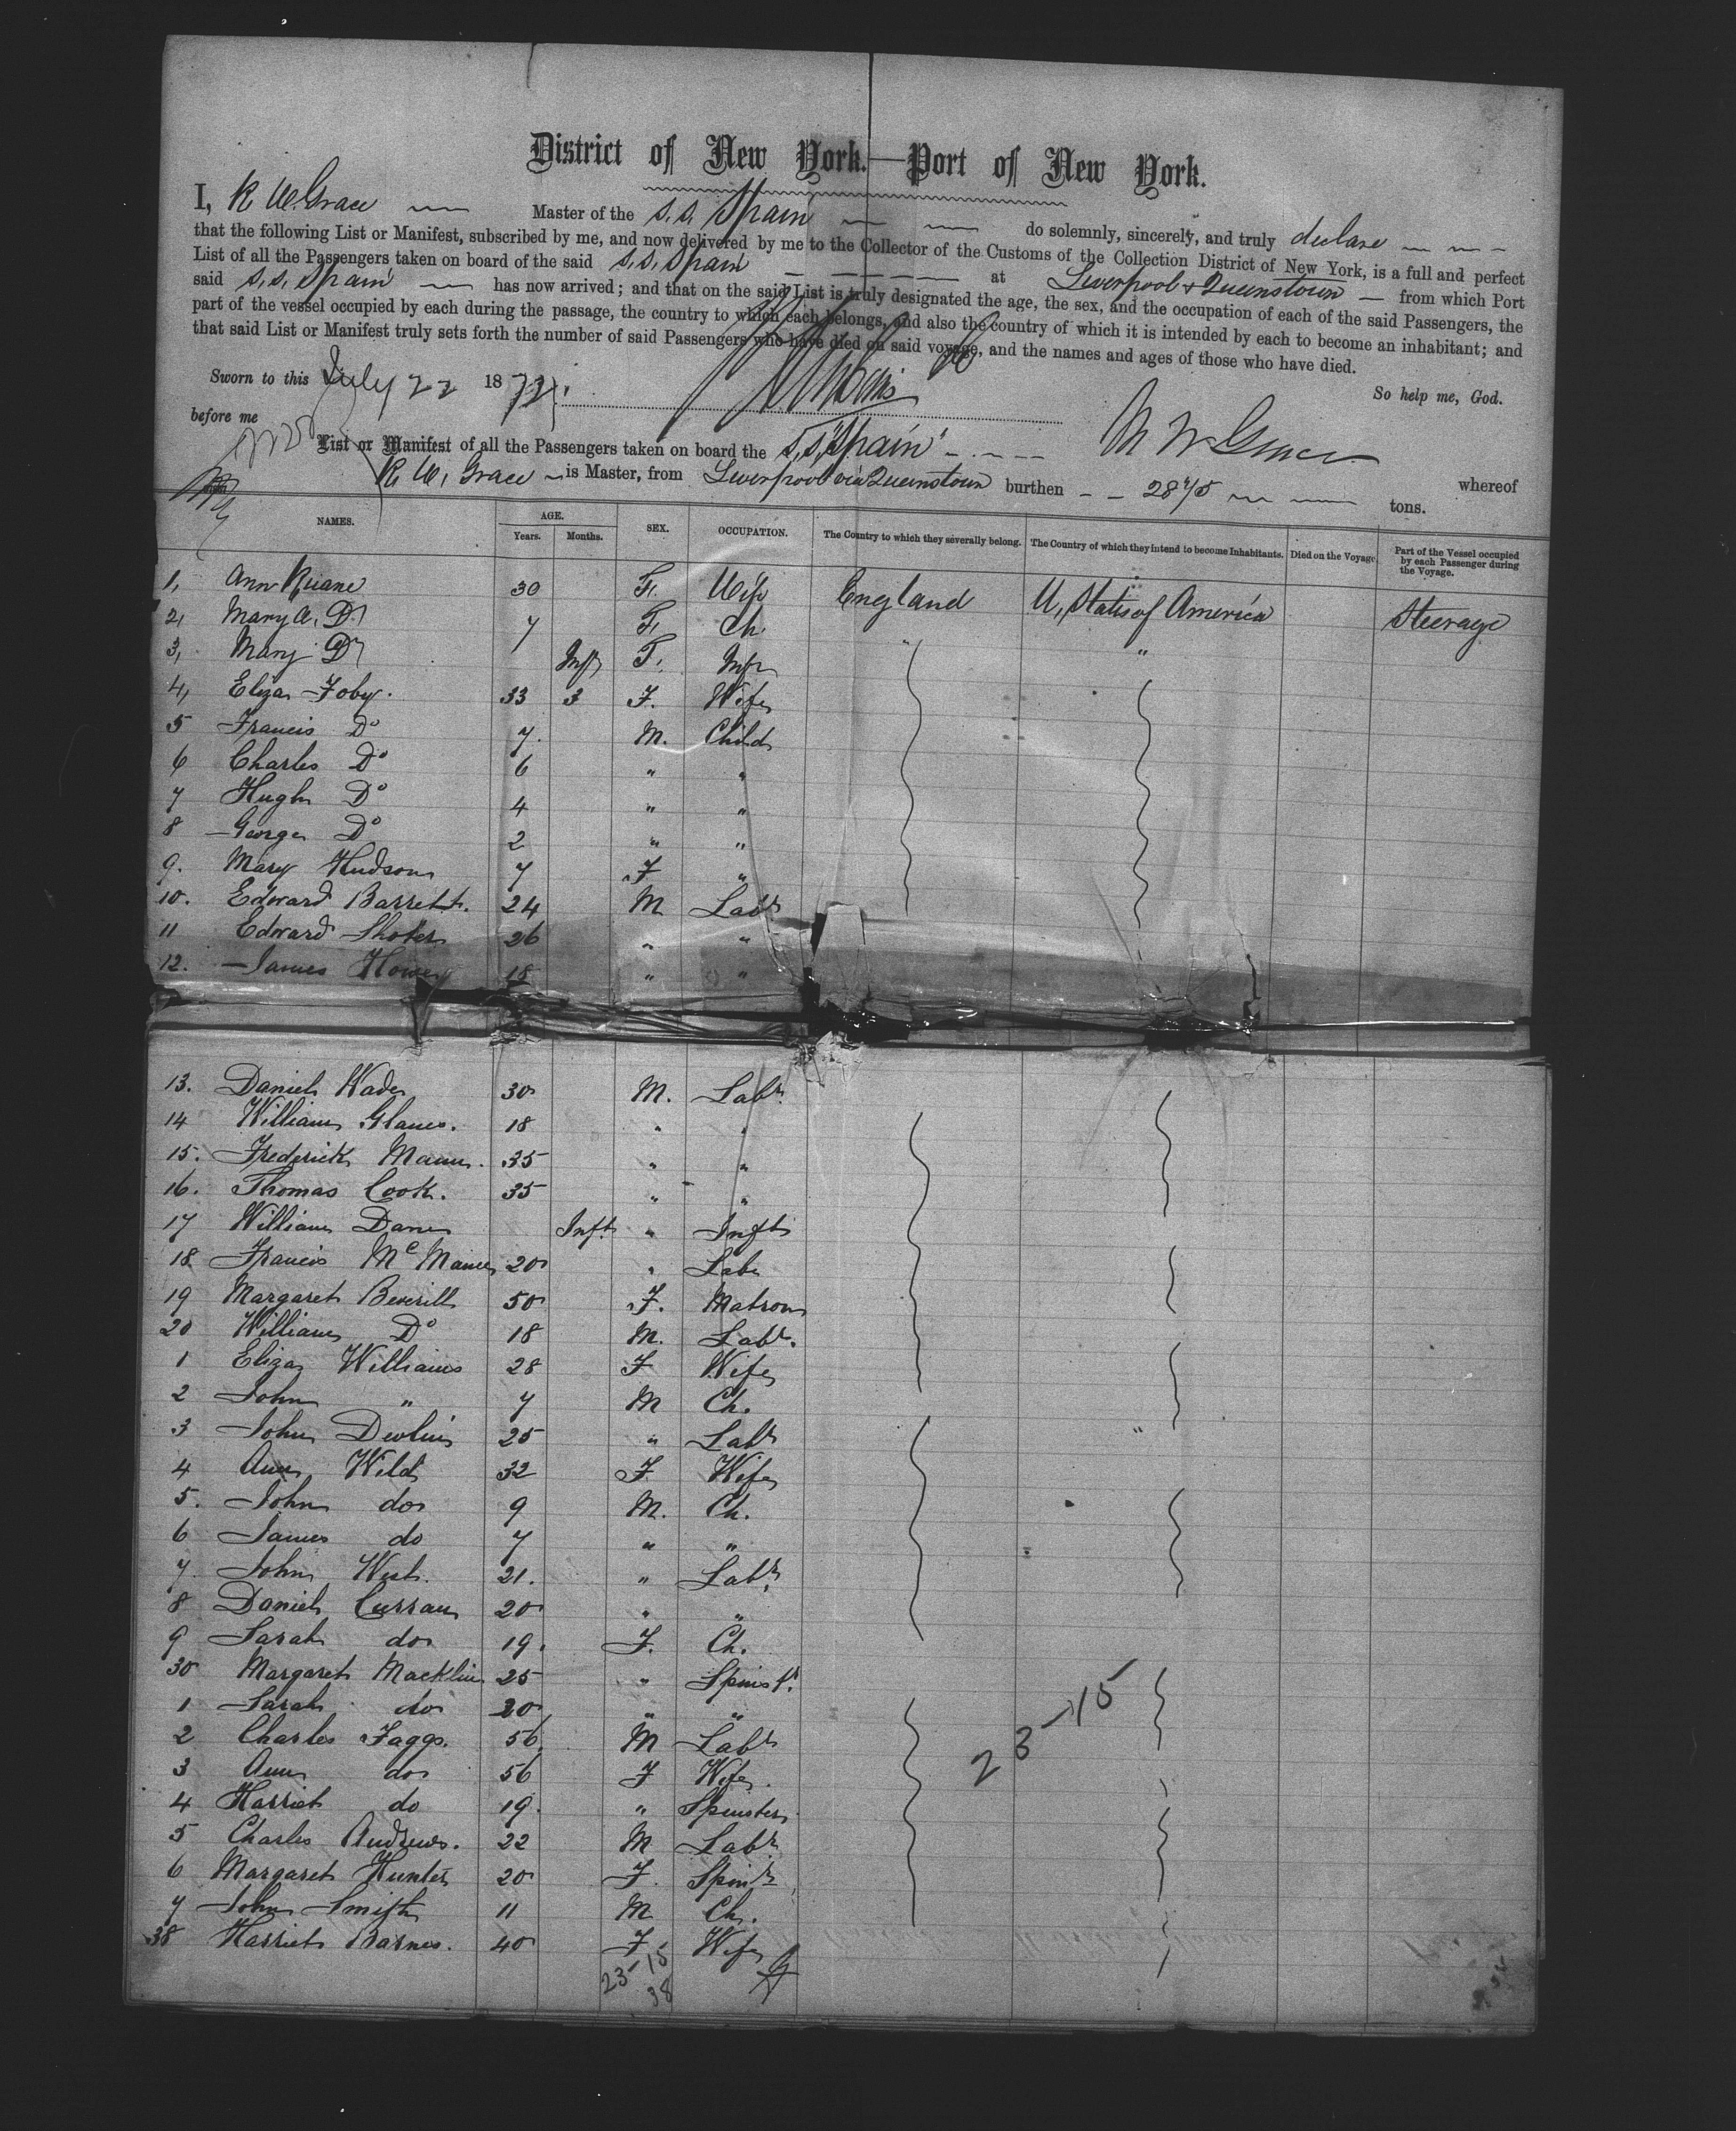 District of New York.—Port of New York.
I, R. W. Grace Master of the S.S. Spain do solemnly, sincerely, and truly declare
that the following List or Manifest, subscribed by me, and now delivered by me to the Collector of the Customs of the Collection District of New York, is a full and perfect
List of all the Passengers taken on board of the said S.S. Spain at Liverpool & Queenstown from which Port
said S.S. Spain has now arrived; and that on the said List is truly designated the age, the sex, and the occupation of each of the said Passengers, the
part of the vessel occupied by each during the passage, the country to which each belongs, and also the country of which it is intended by each to become an inhabitant; and
that said List or Manifest truly sets forth the number of said Passengers who have died on said voyage, and the names and ages of those who have died.
So help me, God.
Sworn to this July 22 18
before me
R W Grace
List or Manifest of all the Passengers taken on board the S.S. "Spain" whereof
R. W. Grace is Master, from Liverpool via Queenstown burthen tons.
NAMES. AGE. SEX. OCCUPATION. The Country to which they severally belong. The Country of which they intend to become Inhabitants. Died on the Voyage. Part of the Vessel occupied by each Passenger during the Voyage.
Years. Months.
1, Ann Ruane 30 F. Wife England U. States of America Steerage
2, Mary A. Do 7 F. Ch. " "
3, Mary Do Inft F. Inft
4, Eliza Foby. 33 3 F. Wife
5 Francis Do 7. M. Child
6 Charles Do 6 " "
7 Hugh Do 4 " "
8 George Do 2 " "
9. Mary Hudson 7 F. "
10. Edward Barrett. 24 M Labr
11 Edward 26 " "
12. James Howe 18 " "
13. Daniel Wade 30 M. Labr
14 William 18 " "
15. Frederick Mann. 35 " "
16. Thomas Cook. 35 " "
17 William Dane Inft " Inft
18 Francis 20 " Labr
19 Margaret Beverill 50 F. Matron
20 William Do 18 M. Labr.
1 Eliza Williams 28 F Wife
2 John " 7 M Ch.
3 John Devlin 25 " Labr "
4 Ann Wild 32 F Wife
5. John do 9 M. Ch.
6 James do 7 " "
7. John West. 21. " Labr.
8 Daniel Curran 20 " "
9 Sarah do 19. F. Ch.
30 Margaret Macklin 25 " Spinst.
1 Sarah do 20 " "
2 Charles Faggs. 56 M Labr
3 Ann do 56 F Wife
4 Harriet do 19. " Spinster
5 Charles Andrews. 22 M Labr
6 Margaret Hunter 20 F. Spinr
7 John Smith 11 M Ch.
38 Harriet Barnes. 40 F Wife
23-15
23-15
38